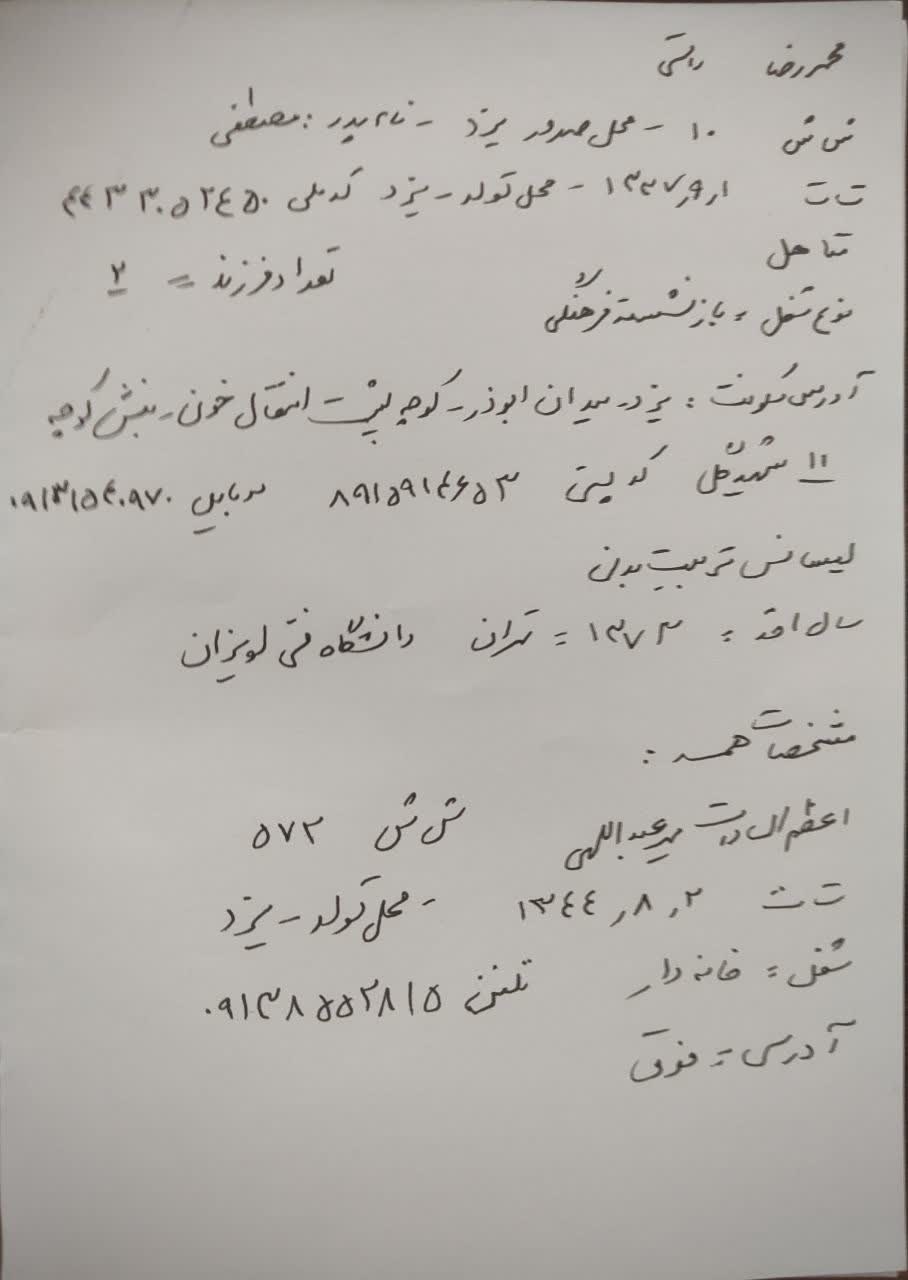 محمدرضا
ش ش ۱۰ - محل صدور یزد - نام پدر : مصطفی
ت ت ۱ر۹ر۱۳۳۷ - محل تولد - یزد کد ملی ۴۴۳۳۰۵۲۴۵۰
متاهل تعداد فرزند = ۲
نوع شغل = بازنشسته فرهنگی
آدرس سکونت : یزد - میدان ابوذر - کوچه پشت انتقال خون - نبش کوچه
۱۱ شهید کد پستی ۸۹۱۵۹۱۴۶۵۳ موبایل ۰۹۱۳۱۵۴۰۹۷۰
لیسانس تربیت بدنی
سال اخذ = ۱۳۷۳ = تهران دانشگاه فنی لویزان
مشخصات همسر :
اعظم السادات ش ش ۵۷۲
ت ت ۲ر۸ر۱۳۴۴ - محل تولد - یزد
شغل = خانه دار تلفن ۰۹۱۳۸۵۵۲۸۱۵
آدرس = فوق